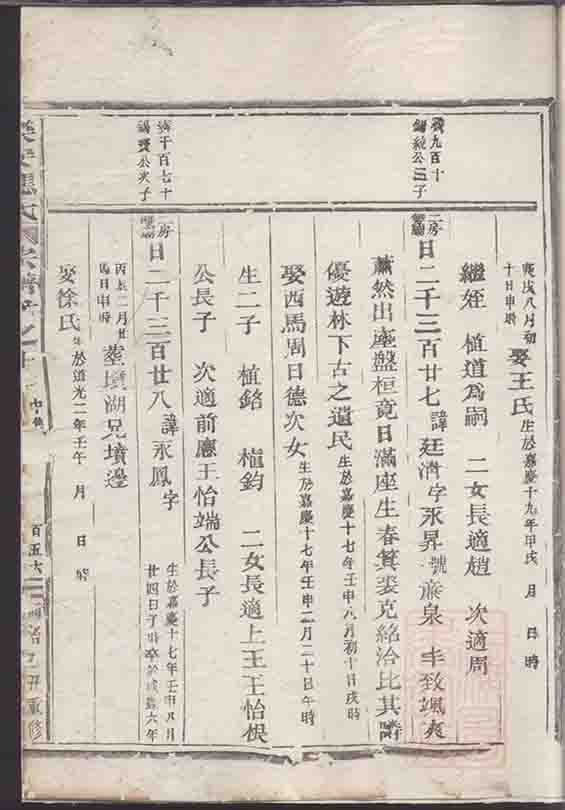 庚戌八月初
十日申時
娶王氏生於嘉慶十九年甲戌 月 日 時
繼姪 植道為嗣 二女長適趙 次適周
九百十
錫紋公三子
二房
日二千三百廿七諱廷濟字永昇號蔴泉 丰致颯爽
蕭然出塵盤桓竟日滿座生春箕裘克紹洽比其鄰
優遊林下古之遺民生於嘉慶十七年壬申八月初十日戌時
娶西馬周日德次女生於嘉慶十七年壬申二月二十日午時
生二子 植鉻 植鈞 二女長適上王王怡根
公長子 次適前應王怡端公長子
千百七十
錫 公次子
二房
日二千三百廿八諱永鳳字
生於嘉慶十七年壬申八月
廿四日子時卒於咸豐六年
丙辰二月廿
日申時
塟墳湖兄墳邊
娶徐氏生於道光二年壬午 月 日 時
氏 宗譜卷之十
百五六
同治 重修